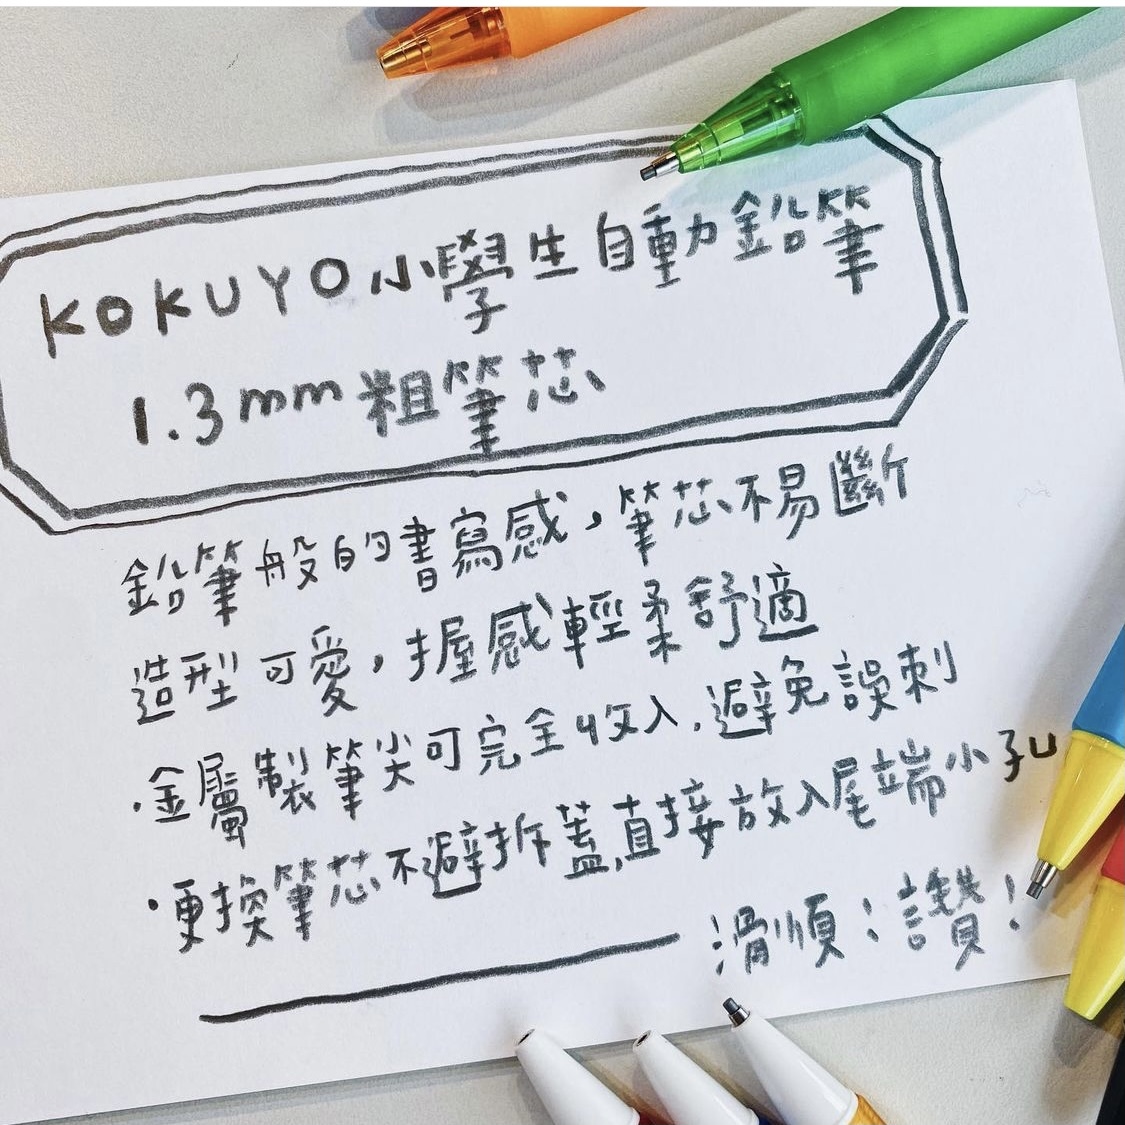 KOKUYO小學生自動鉛筆
1.3mm粗筆芯
鉛筆般的書寫感，筆芯不易斷
造型可愛，握感輕柔舒適
·金屬製筆尖可完全收入，避免誤刺
·更換筆芯不避拆蓋，直接放入尾端小孔
滑順：讚！